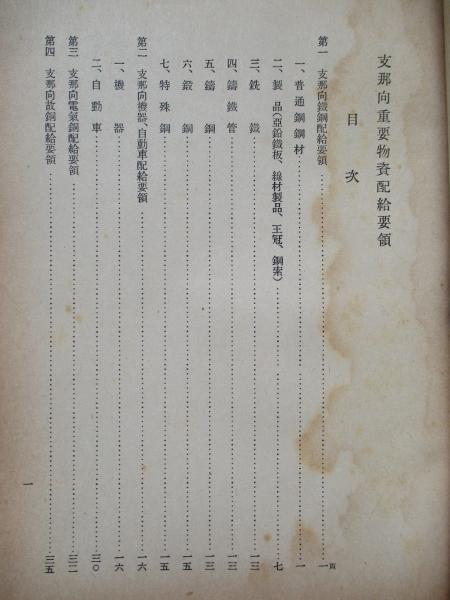 支那向重要物資配給要領
目次
第一 支那向鐵鋼配給要領……一頁
一、普通鋼鋼材……一
二、製品(亞鉛鐵板、線材製品、王冠、鋼索)……七
三、銑鐵……一三
四、鑄鐵管……一三
五、鑄鋼……一三
六、鍛鋼……一五
七、特殊鋼……一五
第二 支那向機器、自動車配給要領……一六
一、機器……一六
二、自動車……三〇
第三 支那向電氣銅配給要領……三二
第四 支那向故銅配給要領……三五
一